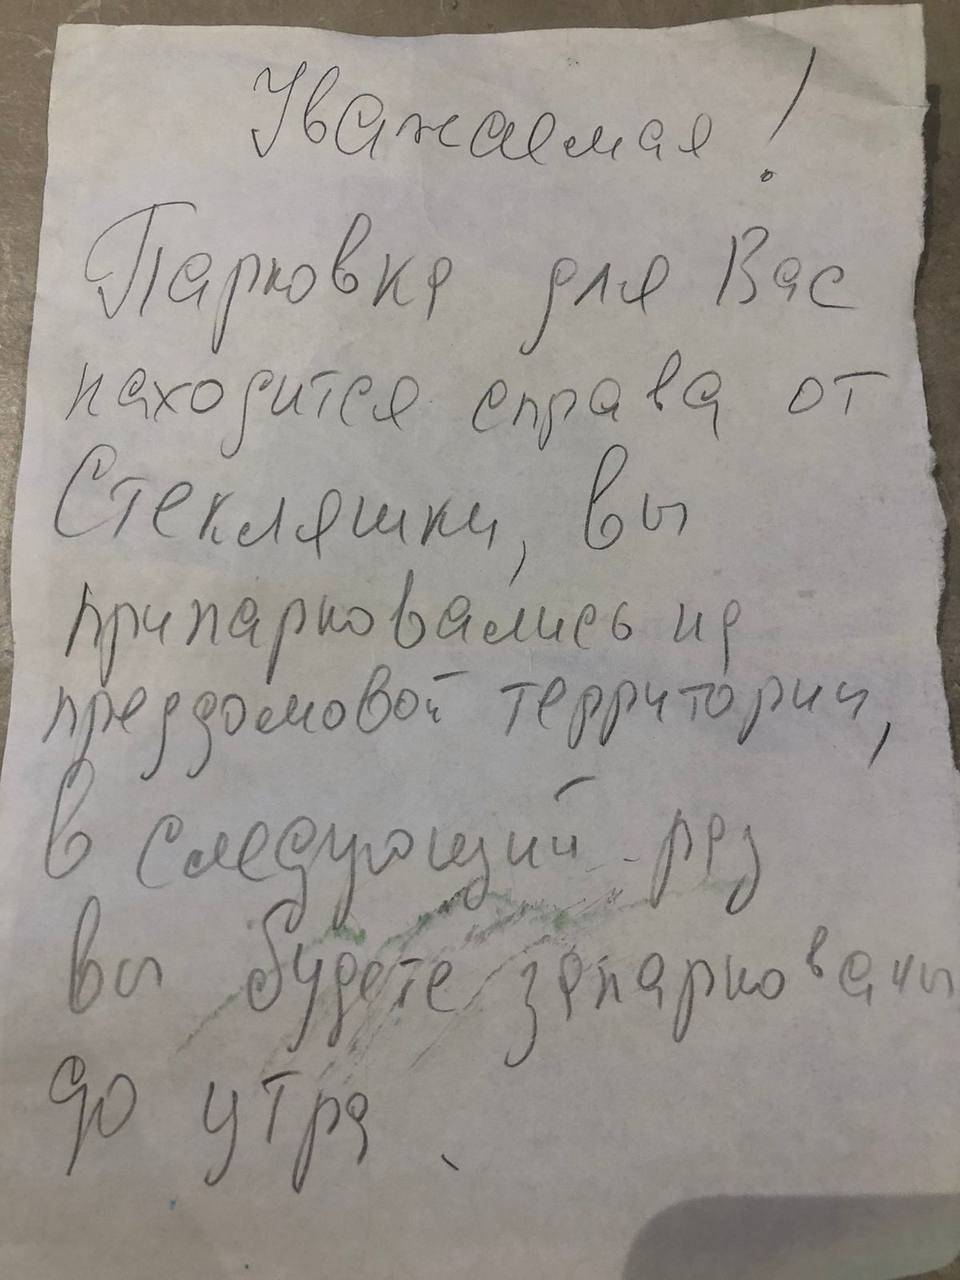 Уважаемая!
Парковка для Вас
находится справа от
Стекляшки, вы
припарковались на
преддомовой территории,
в следующий раз
вы будете запаркованы
до утра.